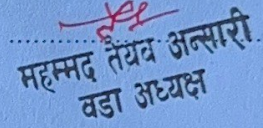 महम्मद तैयव अन्सारी
वडा अध्यक्ष